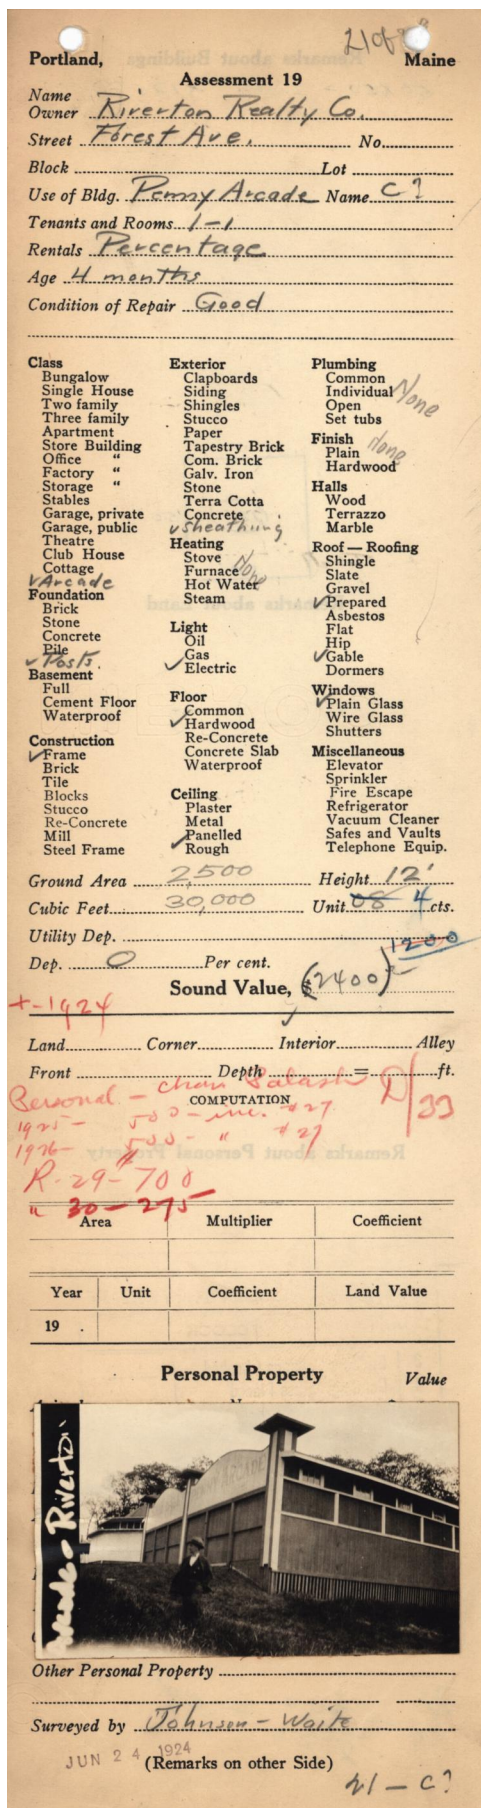 21 of
Portland, Maine
Assessment 19
Name
Owner Riverton Realty Co.
Street Forest Ave. No.
Block Lot
Use of Bldg. Penny Arcade Name C?
Tenants and Rooms 1-1
Rentals Percentage
Age 4 months
Condition of Repair Good
Class
Bungalow
Single House
Two family
Three family
Apartment
Store Building
Office "
Factory "
Storage "
Stables
Garage, private
Garage, public
Theatre
Club House
Cottage
✓Arcade
Foundation
Brick
Stone
Concrete
Pile
✓Posts.
Basement
Full
Cement Floor
Waterproof
Construction
✓Frame
Brick
Tile
Blocks
Stucco
Re-Concrete
Mill
Steel Frame
Exterior
Clapboards
Siding
Shingles
Stucco
Paper
Tapestry Brick
Com. Brick
Galv. Iron
Stone
Terra Cotta
Concrete
✓Sheathing
Heating
Stove
Furnace None
Hot Water
Steam
Light
Oil
Gas
✓Electric
Floor
Common
✓Hardwood
Re-Concrete
Concrete Slab
Waterproof
Ceiling
Plaster
Metal
Panelled
✓Rough
Plumbing
Common
Individual None
Open
Set tubs
Finish
Plain None
Hardwood
Halls
Wood
Terrazzo
Marble
Roof — Roofing
Shingle
Slate
Gravel
✓Prepared
Asbestos
Flat
Hip
✓Gable
Dormers
Windows
✓Plain Glass
Wire Glass
Shutters
Miscellaneous
Elevator
Sprinkler
Fire Escape
Refrigerator
Vacuum Cleaner
Safes and Vaults
Telephone Equip.
Ground Area 2,500 Height 12'
Cubic Feet 30,000 Unit 08 4 cts.
Utility Dep.
1200
Dep. 0 Per cent.
Sound Value, $(2400)
+-1924
Land Corner Interior Alley
Front Depth = ft.
Personal - Chan Palash D/33
COMPUTATION
1925- 500- inc. #27
1926- 500- " #27
R-29-700
" 30-275
Area Multiplier Coefficient
Year Unit Coefficient Land Value
19
Personal Property Value
Riverton
PENNY ARCADE
Other Personal Property
Surveyed by Johnson - Waite
JUN 24 1924
(Remarks on other Side)
21 - C?